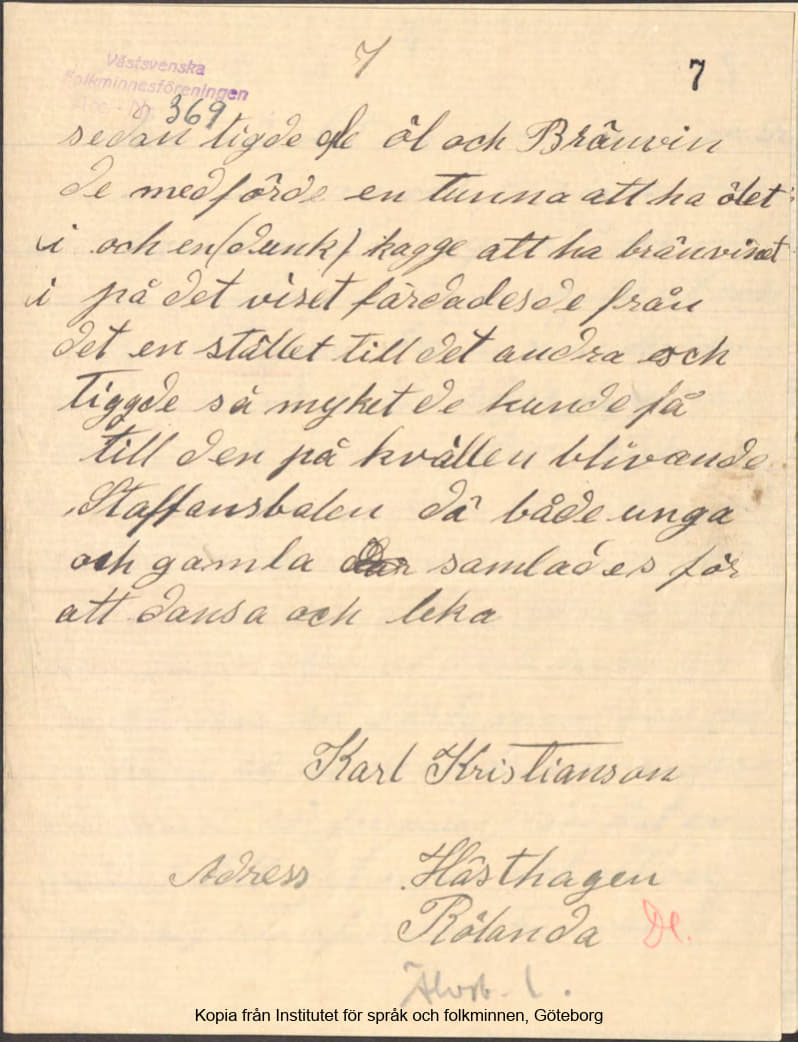 7 7
Västsvenska
Folkminnesföreningen
Acc. Nr 369
sedan tigde de öl och Bränvin
de medförde en tunna att ha ölet
i och en (dunk) kagge att ha bränvinet
i på det viset färdades de från
det en stället till det andra och
tiggde så myket de kunde få
till den på kvällen blivande
Staffansbalen då både unga
och gamla samlades för
att dansa och leka
Karl Kristianson
Adress Hästhagen
Rölanda Dl.
Älvsb. l.
Kopia från Institutet för språk och folkminnen, Göteborg